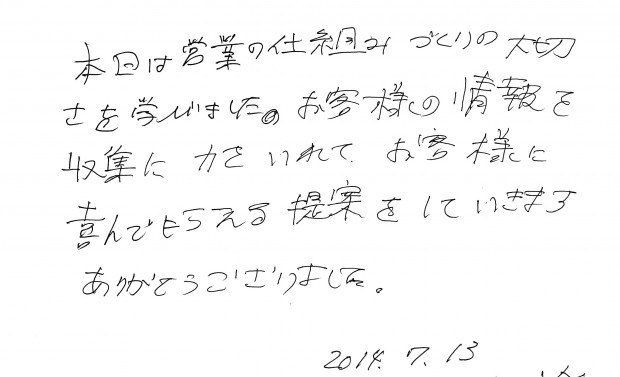 本日は営業の仕組みづくりの大切
さを学びました。お客様の情報を
収集に力をいれて、お客様に
喜んでもらえる提案をしていきます
ありがとうございました。
2014. 7. 13